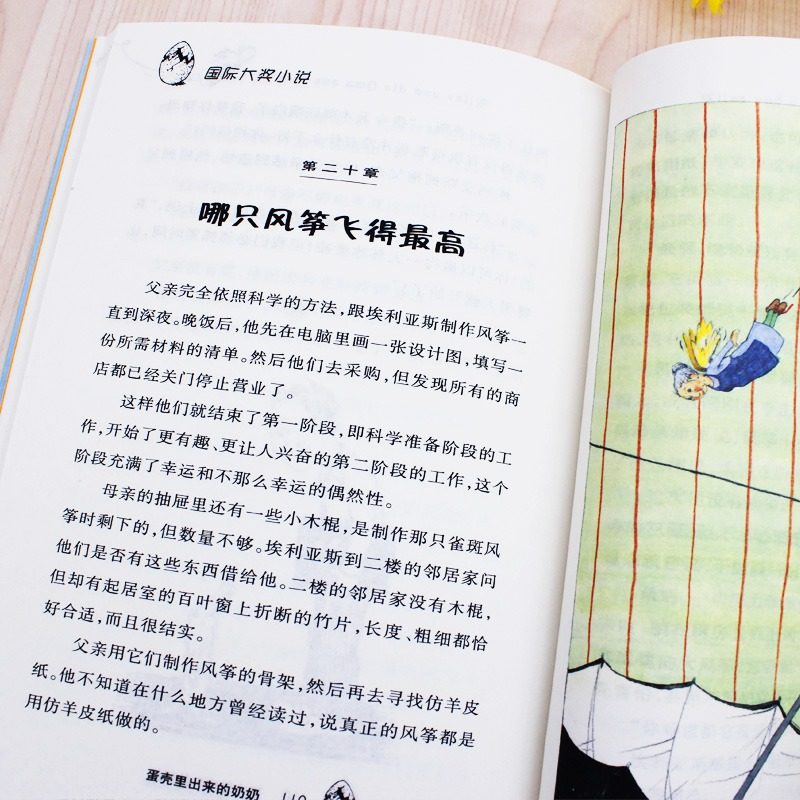 国际大奖小说
第二十章
哪只风筝飞得最高
父亲完全依照科学的方法，跟埃利亚斯制作风筝一
直到深夜。晚饭后，他先在电脑里画一张设计图，填写一
份所需材料的清单。然后他们去采购，但发现所有的商
店都已经关门停止营业了。
这样他们就结束了第一阶段，即科学准备阶段的工
作，开始了更有趣、更让人兴奋的第二阶段的工作，这个
阶段充满了幸运和不那么幸运的偶然性。
母亲的抽屉里还有一些小木棍，是制作那只雀斑风
筝时剩下的，但数量不够。埃利亚斯到二楼的邻居家问
他们是否有这些东西借给他。二楼的邻居家没有木棍，
但却有起居室的百叶窗上折断的竹片，长度、粗细都恰
好合适，而且很结实。
父亲用它们制作风筝的骨架，然后再去寻找仿羊皮
纸。他不知道在什么地方曾经读过，说真正的风筝都是
用仿羊皮纸做的。
蛋壳里出来的奶奶